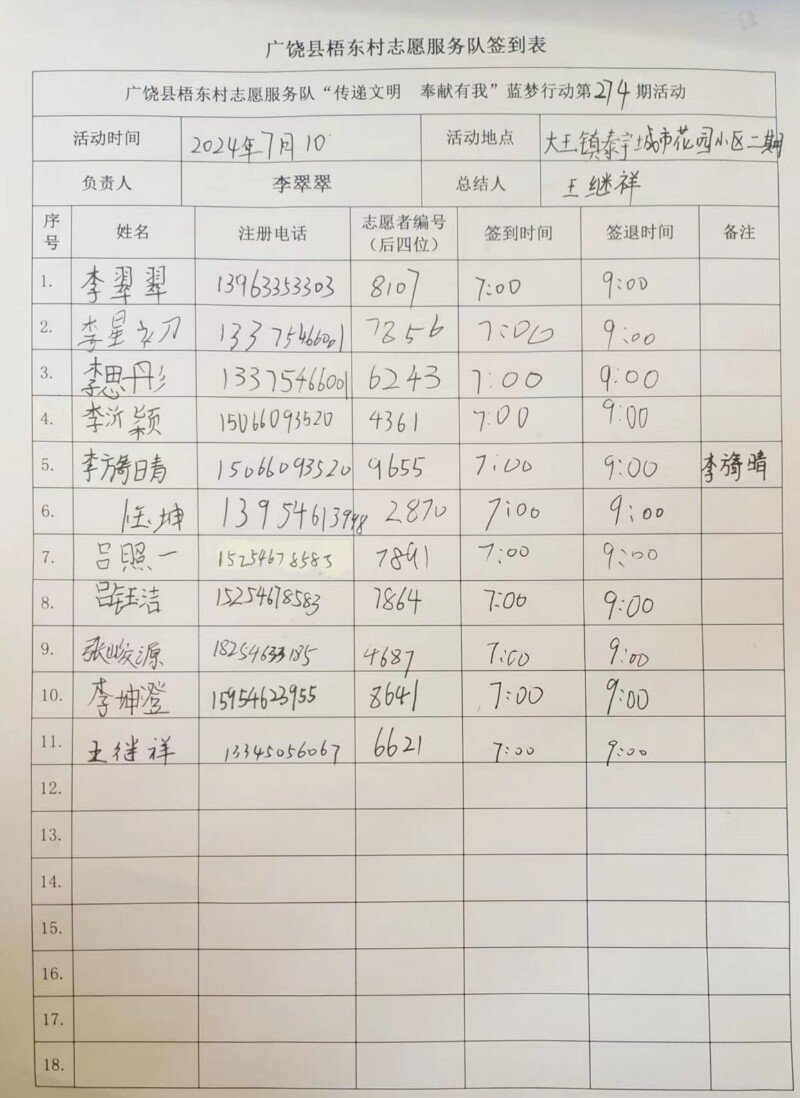 广饶县梧东村志愿服务队签到表
广饶县梧东村志愿服务队“传递文明 奉献有我”蓝梦行动第274期活动
活动时间 2024年7月10 活动地点 大王镇泰宇城市花园小区二期
负责人 李翠翠 总结人 王继祥
序号 姓名 注册电话 志愿者编号(后四位) 签到时间 签退时间 备注
1. 李翠翠 13963353303 8107 7:00 9:00
2. 李星 13375466001 7856 7:00 9:00
3. 李思彤 13375466001 6243 7:00 9:00
4. 李沂颖 15066093520 4361 7:00 9:00
5. 李旖晴 15066093520 9655 7:00 9:00 李旖晴
6. 任坤 13954613998 2870 7:00 9:00
7. 吕照一 15254678583 7891 7:00 9:00
8. 吕钰洁 15254678583 7864 7:00 9:00
9. 张峻源 18254633185 4687 7:00 9:00
10. 李坤澄 15954623955 8641 7:00 9:00
11. 王继祥 13345056067 6621 7:00 9:00
12.
13.
14.
15.
16.
17.
18.